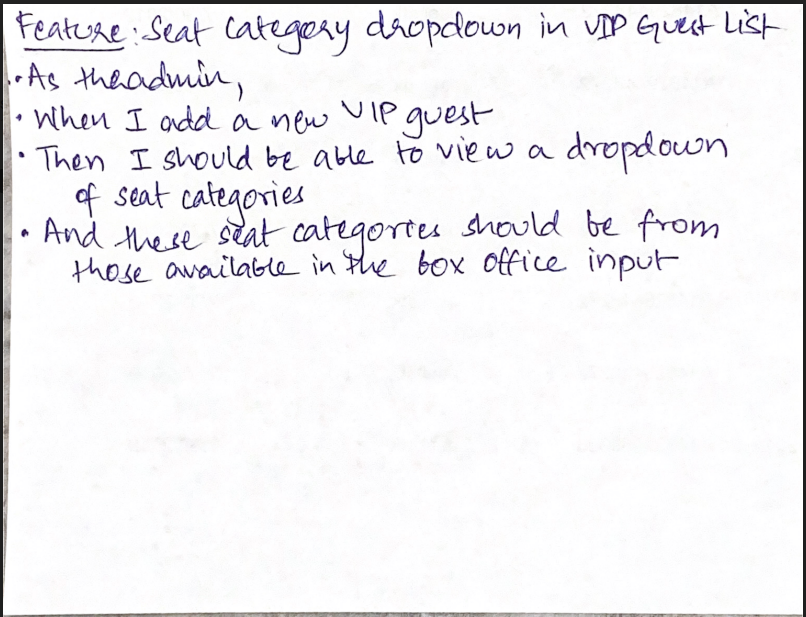 Feature: Seat Category dropdown in VIP Guest List
• As the admin,
• When I add a new VIP guest
• Then I should be able to view a dropdown
of seat categories
• And these seat categories should be from
those available in the box office input